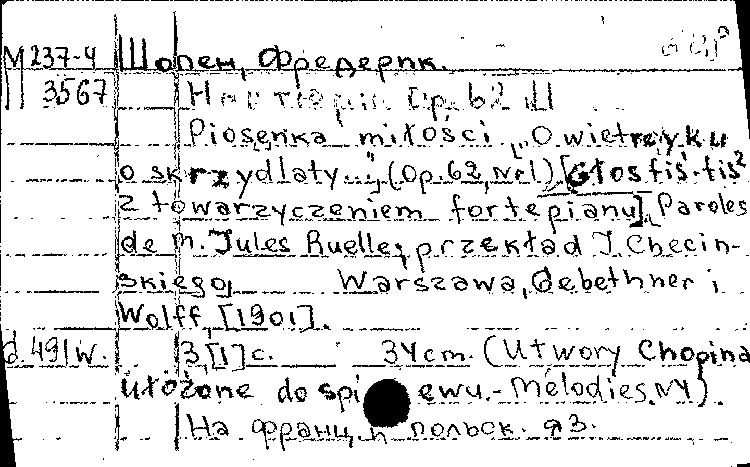 М 237-4 Шопен, Фредерик.
П 3567 Ноктюрн Op. 62 №1
Piosenka miłości „O wietrzyku
o skrzydlaty...", (Op. 62, №1) [Głos fis-fis²
z towarzyczeniem fortepianu], Paroles
de M. Jules Ruelle, przekład J. Checin-
skiego, Warszawa, Gebethner i
Wolff, [1901].
d. 491w. 3, [1] c. 34 cm. (Utwory Chopina
ułożone do śpiewu.- Mélodies, №1).
На франц. и польск. яз.